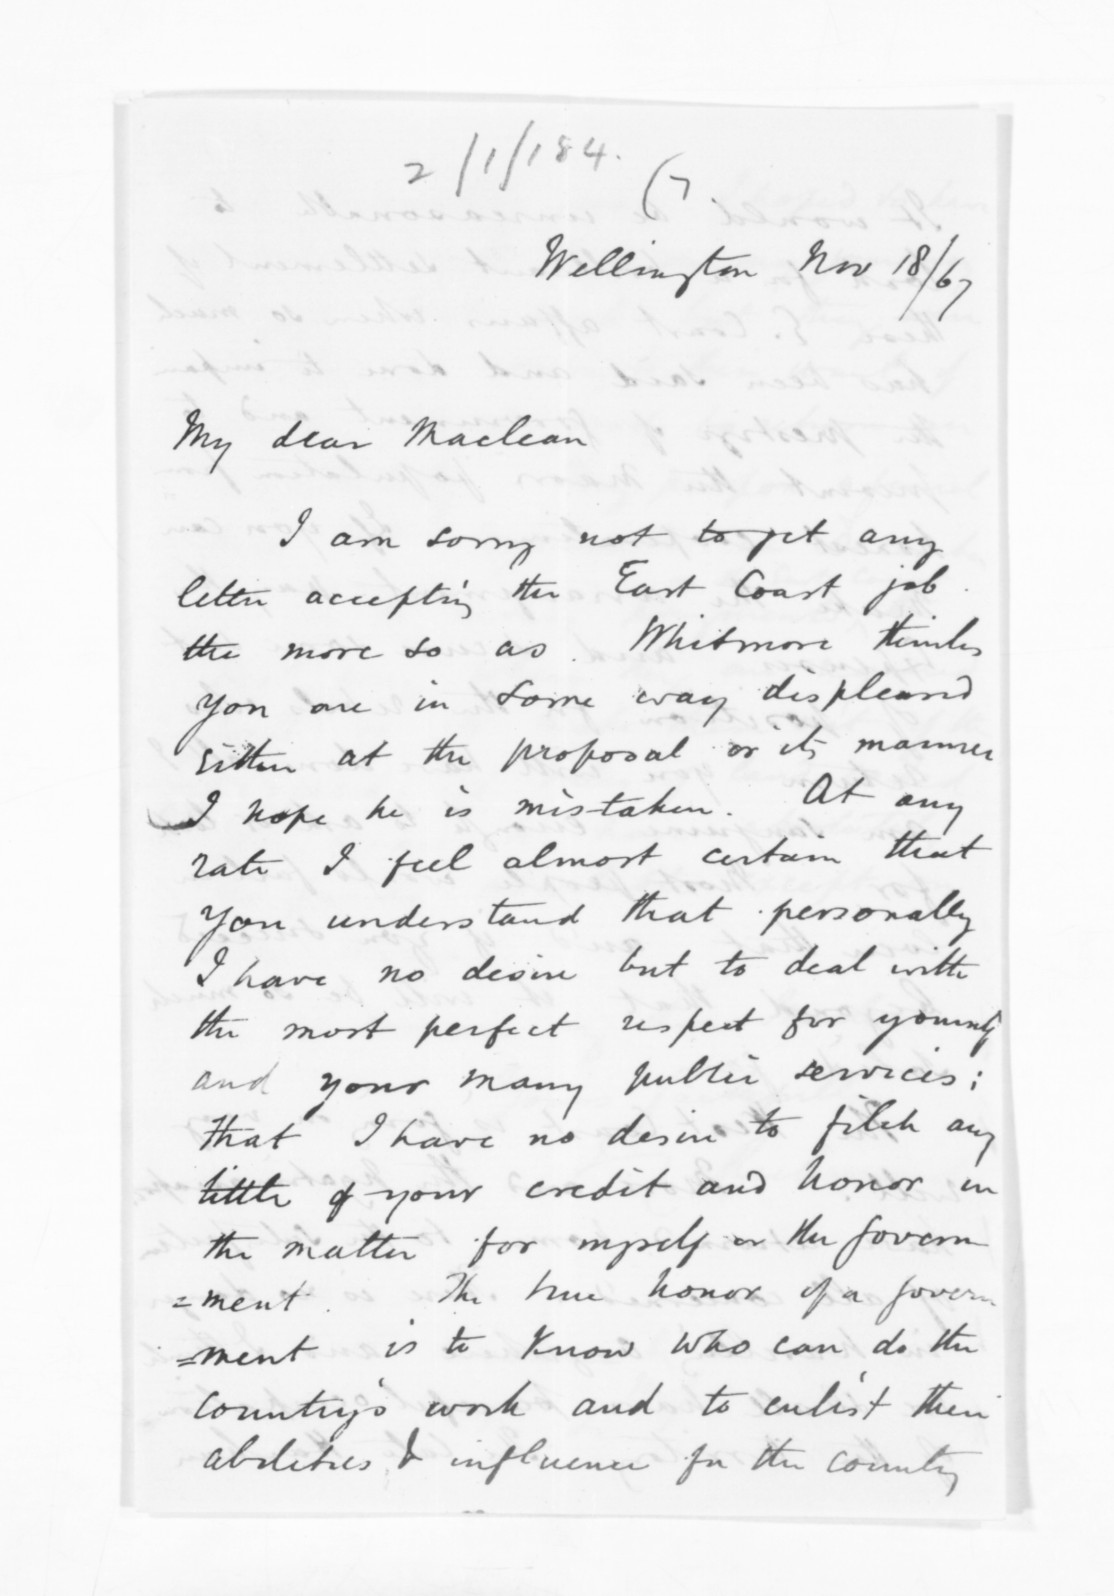 2/1/184.
(7.
Wellington Nov 18/67
My dear Maclean
I am sorry not to get any
letter accepting the East Coast job.
the more so as Whitmore thinks
you are in some way displeased
either at the proposal or its manner
I hope he is mistaken. At any
rate I feel almost certain that
you understand that personally
I have no desire but to deal with
the most perfect respect for yourself
and your many public services;
that I have no desire to filch any
little of your credit and honor in
the matter for myself or the Govern
=ment. The true honor of a Govern
=ment is to know who can do the
country's work and to enlist their
abilities & influence for the country